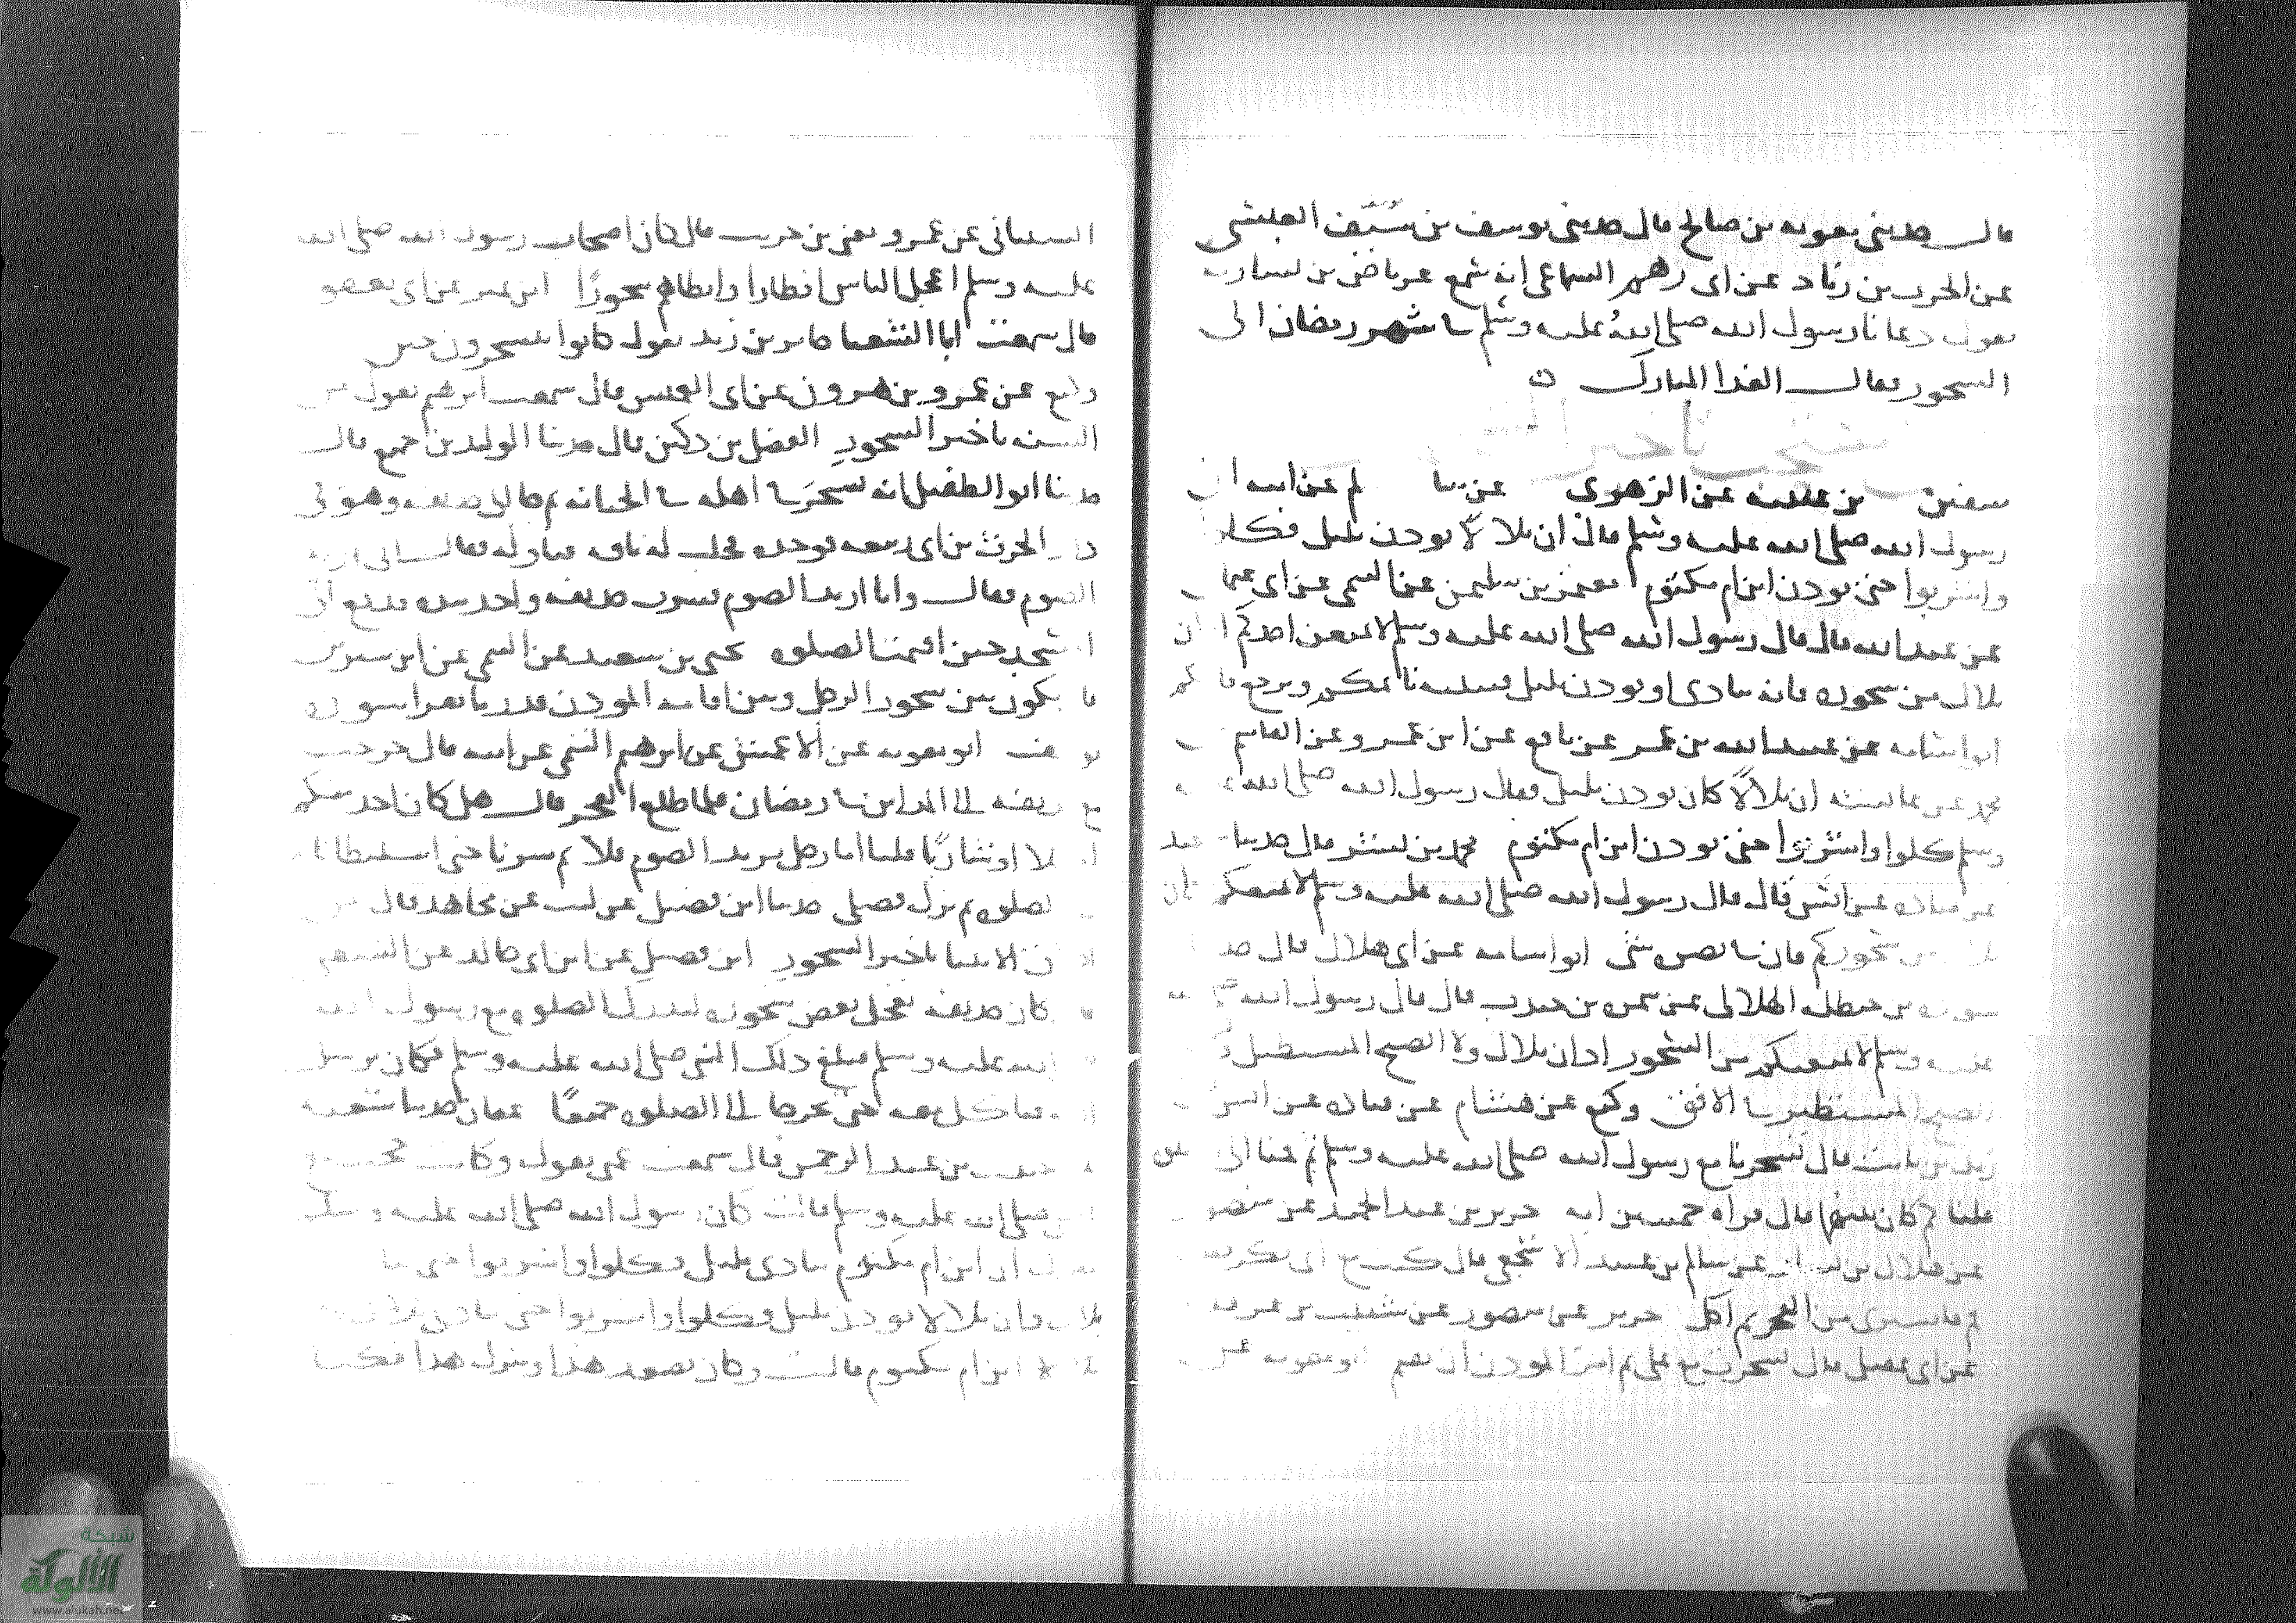 قال حدثني معوية بن صالح قال حدثني يوسف بن سيف العبسي
عن الحرث بن زياد عن ابى رهم السماعى انه سمع عرباض بن سارية
يقول دعانا رسول الله صلى الله عليه وسلم في شهر رمضان الى
السحور فقال الغدا المبارك
سفين بن عيينه عن الزهرى عن سالم عن ابيه ان
رسول الله صلى الله عليه وسلم قال ان بلالا يوذن بليل فكلوا
واشربوا حتى يوذن ابن ام مكتوم معتمر بن سليمن عن التيمى عن ابى عثمان
عن عبد الله قال قال رسول الله صلى الله عليه وسلم لا يمنعن احدكم اذان
بلال من سحوره فانه ينادى او يوذن بليل فينبه نائمكم ويرجع قائمكم
ابو اسامه عن عبيد الله بن عمر عن نافع عن ابن عمر وعن القاسم
محمد عن عائشه ان بلالا كان يوذن بليل فقال رسول الله صلى الله
وسلم كلوا واشربوا حتى يوذن ابن ام مكتوم محمد بن بشر قال حدثنا
عن قتاده عن انس قال قال رسول الله صلى الله عليه وسلم لا يمنعكم اذان
بلال من سحوركم فان في بصره شى ابو اسامه عن ابى هلال قال حد
سوده بن حنظله الهلالى عن سمره بن جندب قال قال رسول الله
عليه وسلم لا يمنعكم من السحور اذان بلال ولا الصبح المستطيل
الصبح المستطير في الافق وكيع عن هشام عن قتاده عن انس
زيد بن ثابت قال تسحرنا مع رسول الله صلى الله عليه وسلم ثم قمنا الى
قلنا كم كان بينهما قال قراه خمسين ايه جرير بن عبد الحميد عن منصور
عن هلال بن يساف عن سالم بن عبيد الاشجعى قال كنت مع ابى بكر
قم فاسترنى من الفجر ثم اكل جرير عن منصور عن شبيب بن غرقده
عن ابى عقيل قال تسحرت مع على ثم امر الموذن ان يقيم ابو معوية عن
الشيبانى عن عمرو يعنى بن حريث قال كان اصحاب رسول الله صلى الله
عليه وسلم اعجل الناس افطارا وابطاهم سحورًا ابن نمير عن ابى يعفور
قال سمعت ابا الشعثا جابر بن زيد يقول كانوا يتسحرون حين
وكيع عن عمرو بن هرون عن ابى العنبس قال سمعت ابرهيم يقول من
السنه تاخير السحور الفضل بن دكين قال حدثنا الوليد بن جميع قال
حدثنا ابو الطفيل انه تسحر في اهله في الجبانه ثم جا الى حذيفه وهو فى
دار الحرث بن ابى ربيعه فوجده فحلب له ناقه فناوله فقال انى اريد
الصوم فقال وانا اريد الصوم فشرب حذيفه واخذ بيده فدفع الى
المسجد حين اقيمت الصلوه يحيى بن سعيد عن التيمى عن ابن سيرين
يكون بين سحور الرجل وبين اقامه الموذن قدر ما يقرا سوره
يوسف ابو معويه عن الاعمش عن ابرهيم التيمى عن ابيه قال خرجت
مع حذيفه الى المداين في رمضان فلما طلع الفجر قال هل كان احد منكم
اكلا او شاربًا قلنا اما رجل يريد الصوم فلا ثم سرنا حتى استبطانا
الصلوه ثم نزل فصلى حدثنا ابن فضيل عن ليث عن مجاهد قال من
اخلاق الانبيا تاخير السحور ابن فضيل عن ابن ابى خالد عن الشعبى
كان حذيفه يعجل بعض سحوره ليدرك الصلوه مع رسول الله
الله عليه وسلم فبلغ ذلك النبى صلى الله عليه وسلم فكان يرسل
فياكل معه حتى يخرجا الى الصلوه جميعًا عفان حدثنا شعبه
خبيب بن عبد الرحمن قال سمعت عمتى تقول وكانت
صلى الله عليه وسلم قالت كان رسول الله صلى الله عليه وسلم
يقول ان ابن ام مكتوم ينادى بليل فكلوا واشربوا حتى ينا
بلال وان بلالا يوذن بليل فكلوا واشربوا حتى يوذن
ابن ام مكتوم قالت وكان يصعد هذا وينزل هذا فكنا
شبكة
الألوكة
www.alukah.net